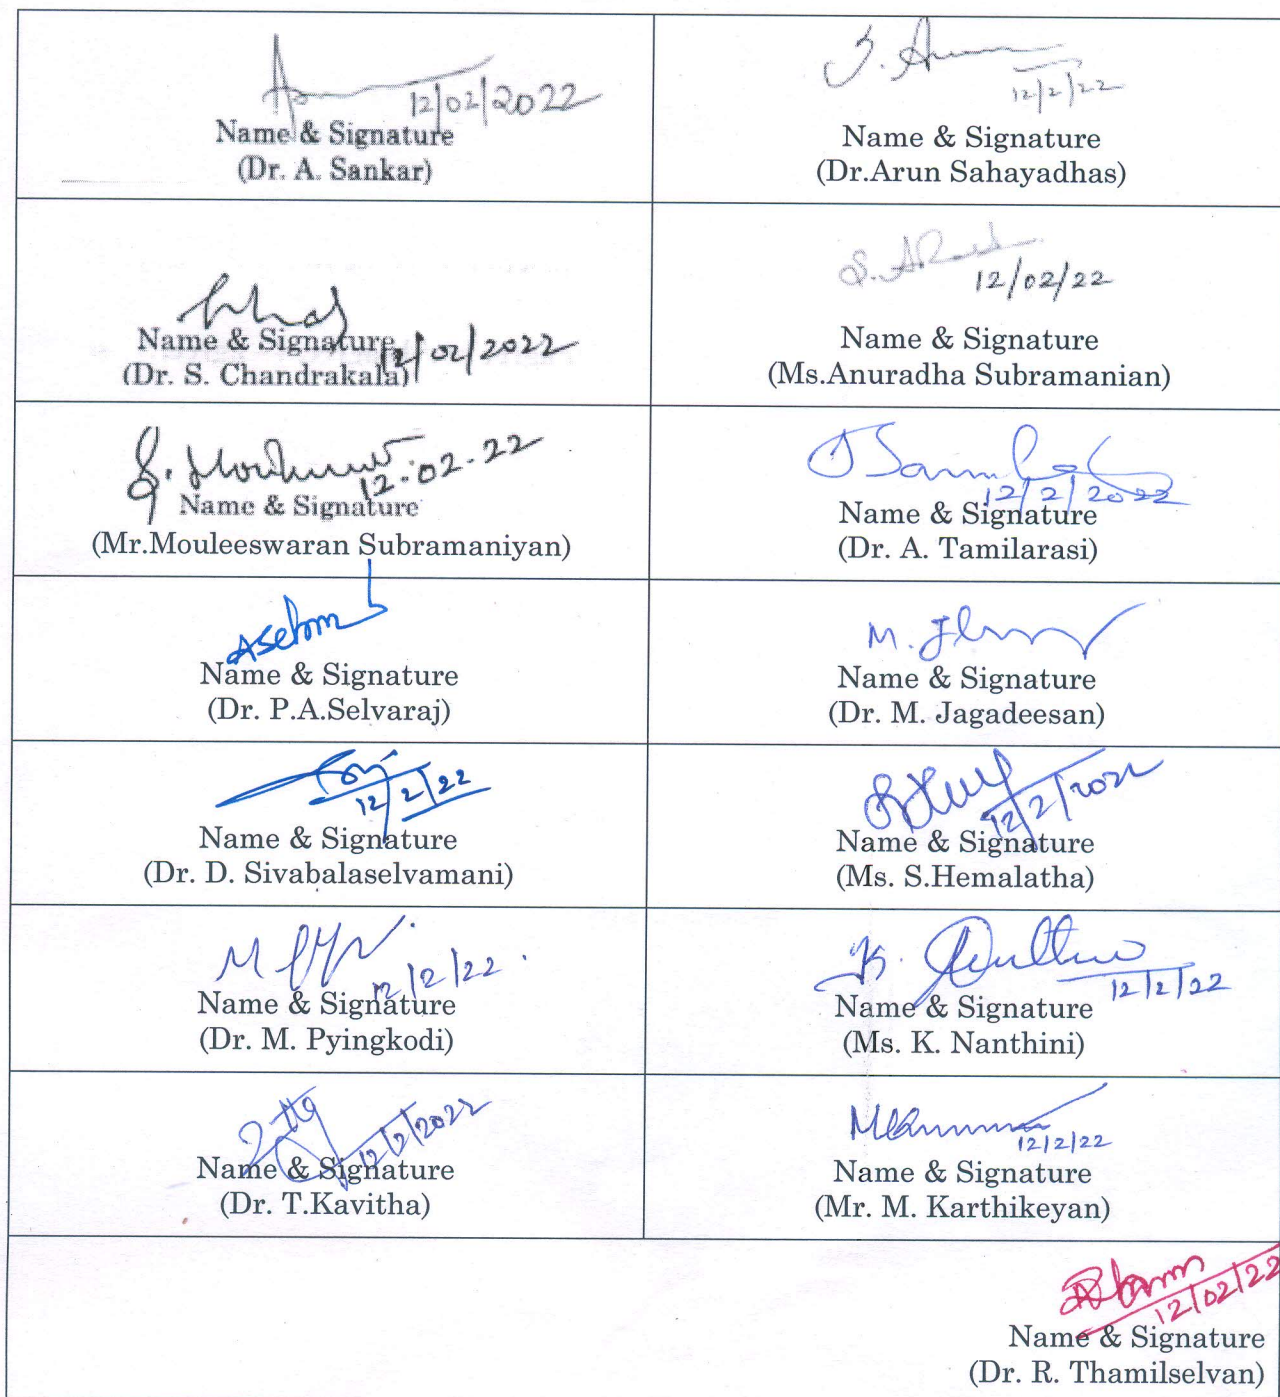 12/02/2022
Name & Signature
(Dr. A. Sankar)
12/2/22
Name & Signature
(Dr.Arun Sahayadhas)
Name & Signature
12/02/2022
(Dr. S. Chandrakala)
12/02/22
Name & Signature
(Ms.Anuradha Subramanian)
12-02-22
Name & Signature
(Mr.Mouleeswaran Subramaniyan)
12/2/2022
Name & Signature
(Dr. A. Tamilarasi)
Name & Signature
(Dr. P.A.Selvaraj)
Name & Signature
(Dr. M. Jagadeesan)
12/2/22
Name & Signature
(Dr. D. Sivabalaselvamani)
12/2/2022
Name & Signature
(Ms. S.Hemalatha)
12/2/22
Name & Signature
(Dr. M. Pyingkodi)
12/2/22
Name & Signature
(Ms. K. Nanthini)
12/2/2022
Name & Signature
(Dr. T.Kavitha)
12/2/22
Name & Signature
(Mr. M. Karthikeyan)
12/02/22
Name & Signature
(Dr. R. Thamilselvan)